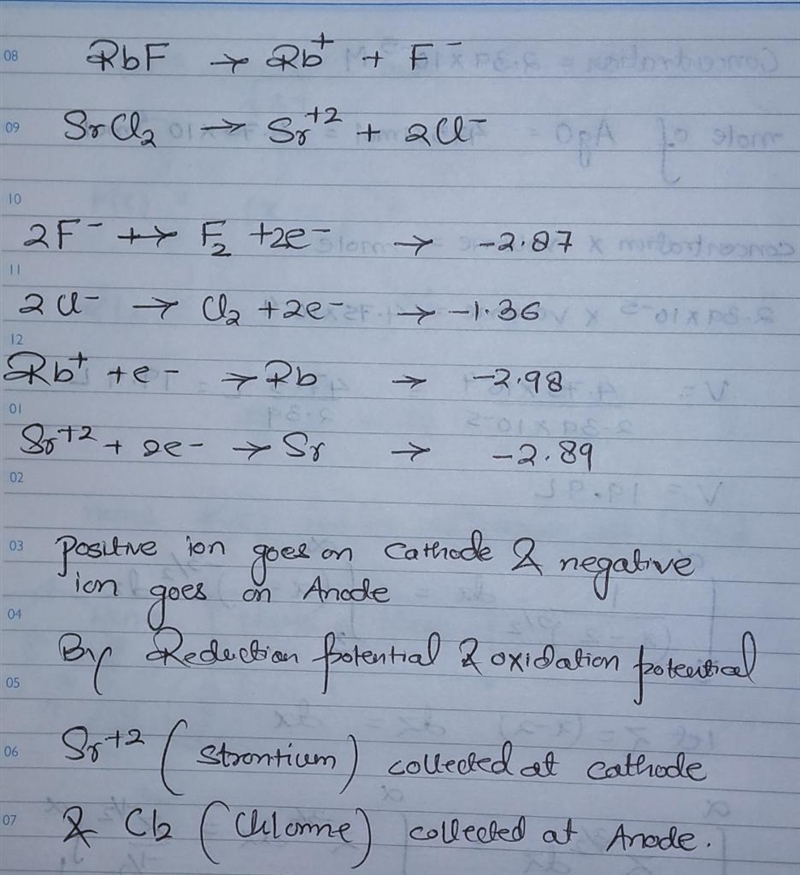 08 RbF → Rb⁺ + F⁻
09 SrCl₂ → Sr⁺² + 2Cl⁻
10
2F⁻ → F₂ + 2e⁻ → -2.87
11
2Cl⁻ → Cl₂ + 2e⁻ → -1.36
12
Rb⁺ + e⁻ → Rb → -2.98
01
Sr⁺² + 2e⁻ → Sr → -2.89
02
03 Positive ion goes on Cathode & negative
ion goes on Anode
04
By Reduction potential & oxidation potential
05
06 Sr⁺² (Strontium) collected at cathode
07 & Cl₂ (Chlorine) collected at Anode.